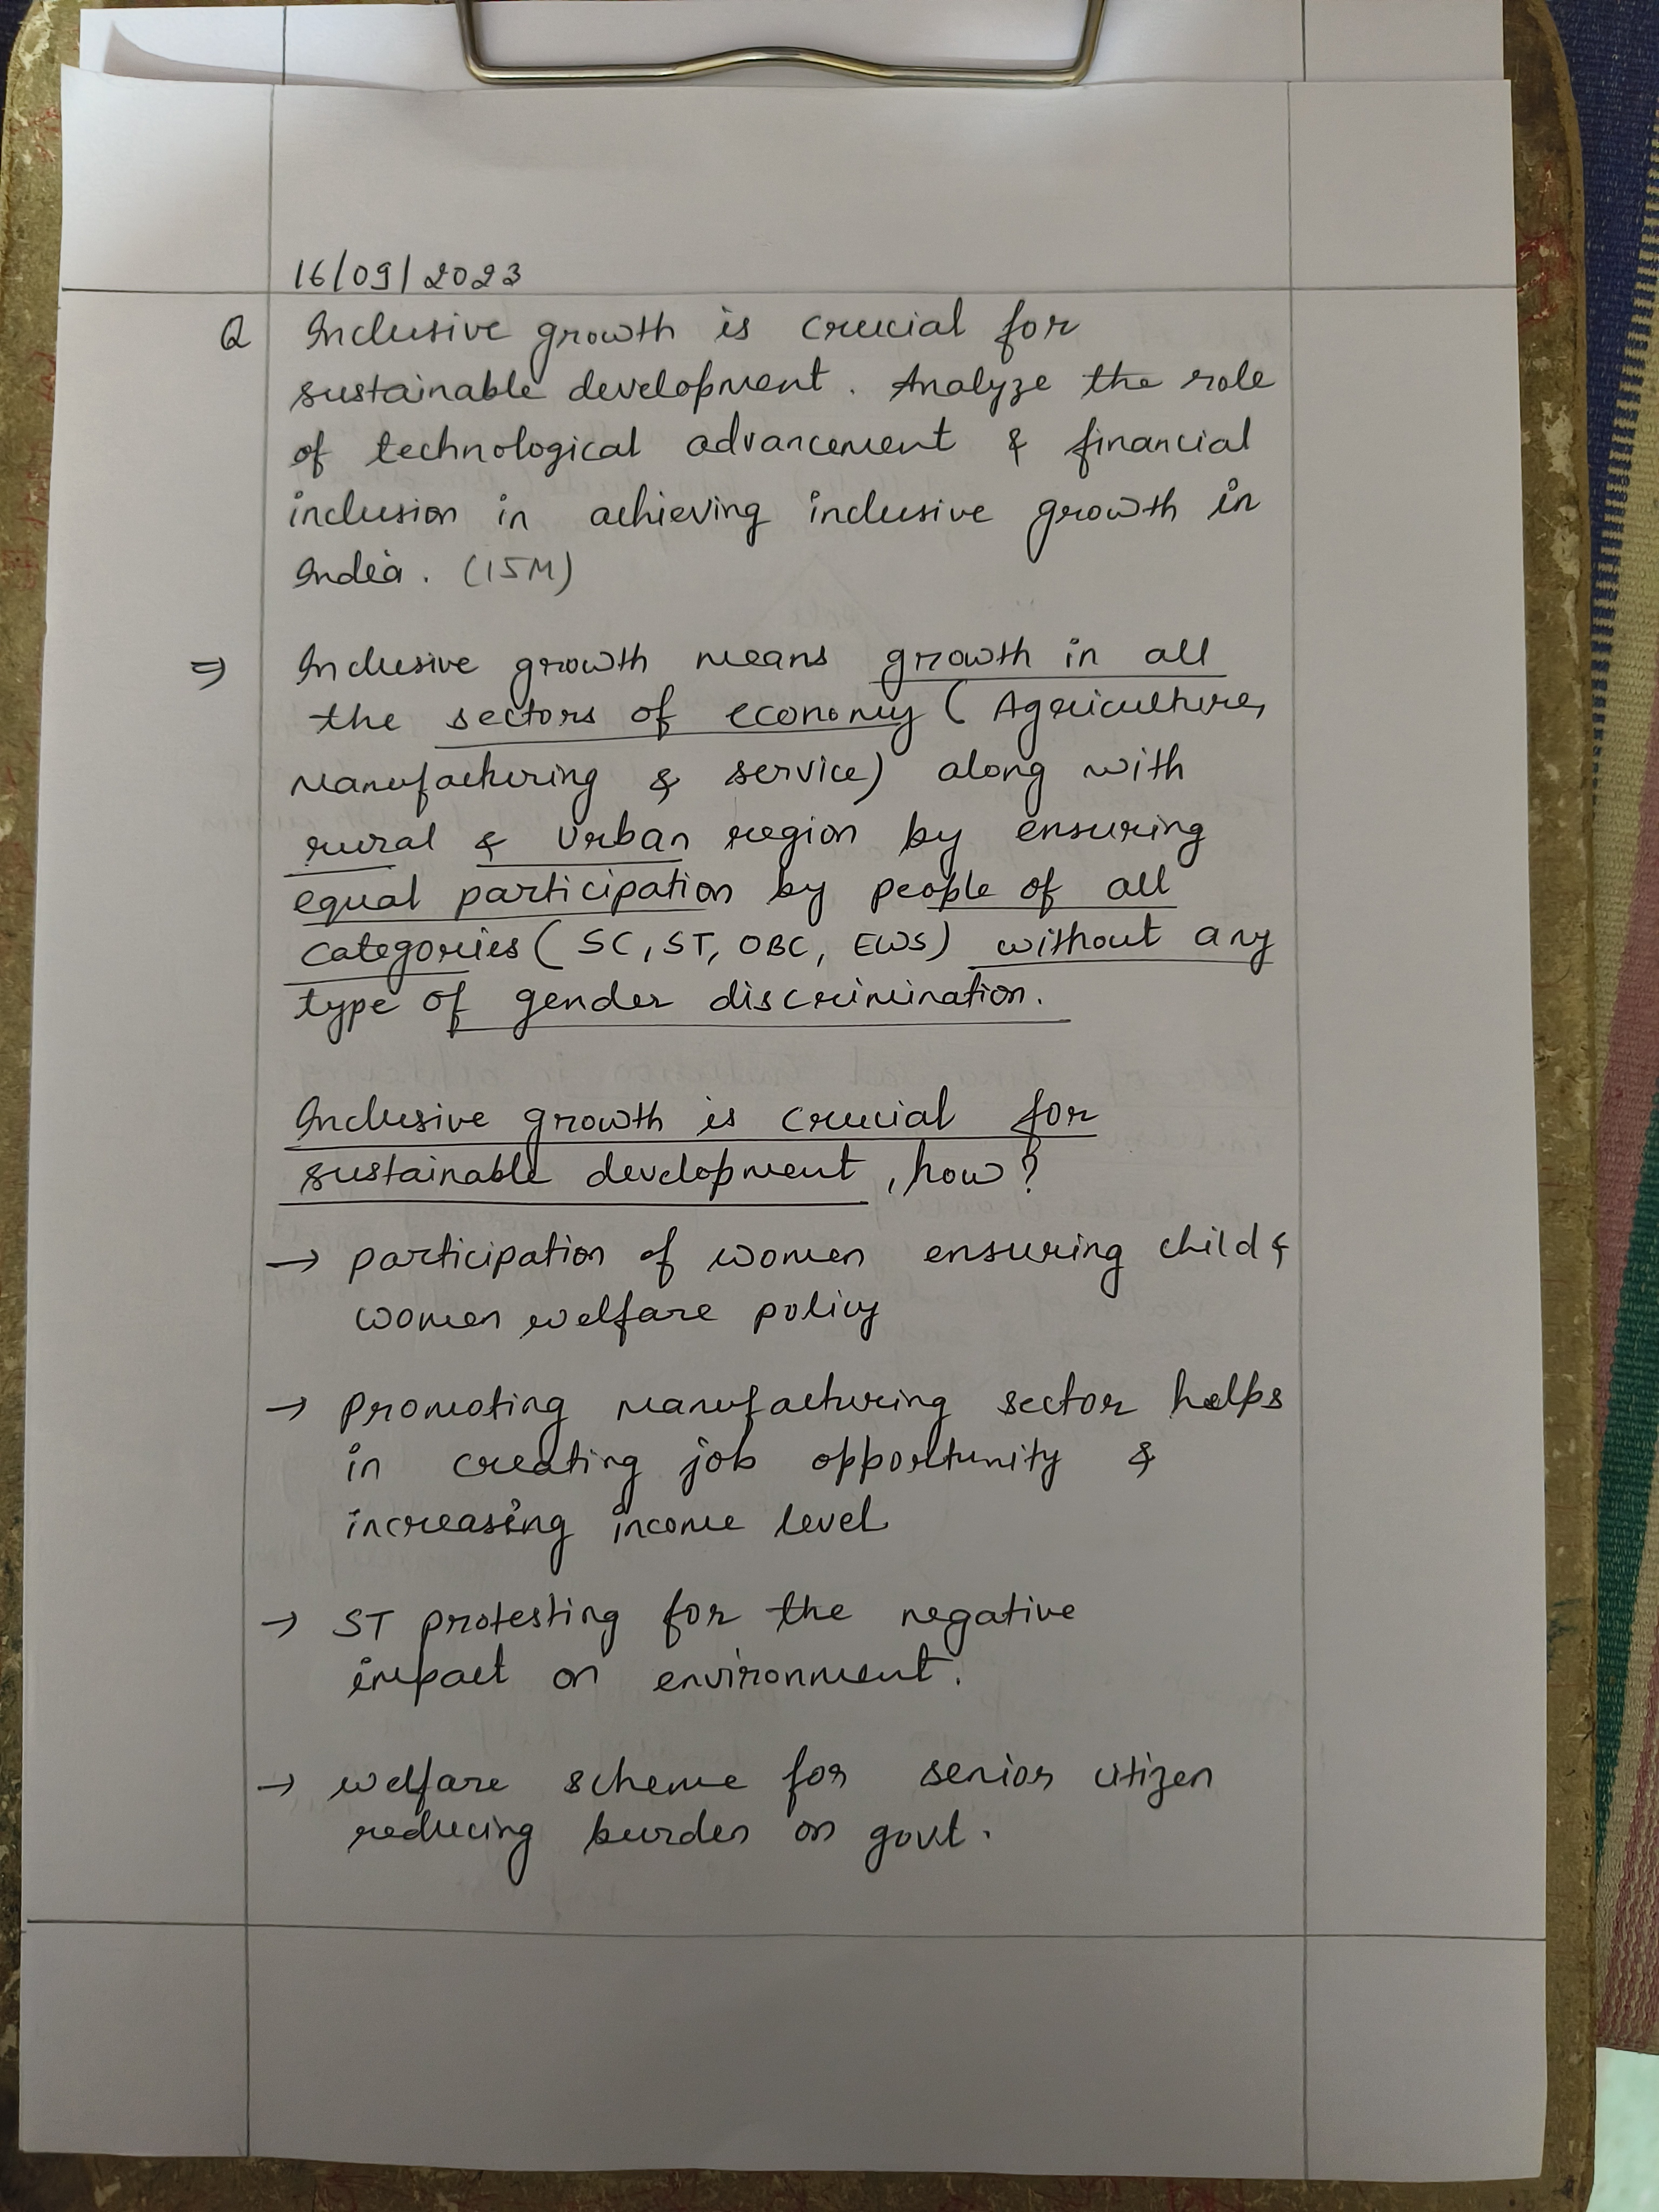 16/09/2023
Q Inclusive growth is crucial for
sustainable development. Analyze the role
of technological advancement & financial
inclusion in achieving inclusive growth in
India. (15M)
⇒ Inclusive growth means growth in all
the sectors of economy (Agriculture,
Manufacturing & service) along with
rural & Urban region by ensuring
equal participation by people of all
categories (SC, ST, OBC, EWS) without any
type of gender discrimination.
Inclusive growth is crucial for
sustainable development, how?
→ participation of women ensuring child &
women welfare policy
→ Promoting manufacturing sector helps
in creating job opportunity &
increasing income level
→ ST protesting for the negative
impact on environment.
→ welfare scheme for senior citizen
reducing burden on govt.